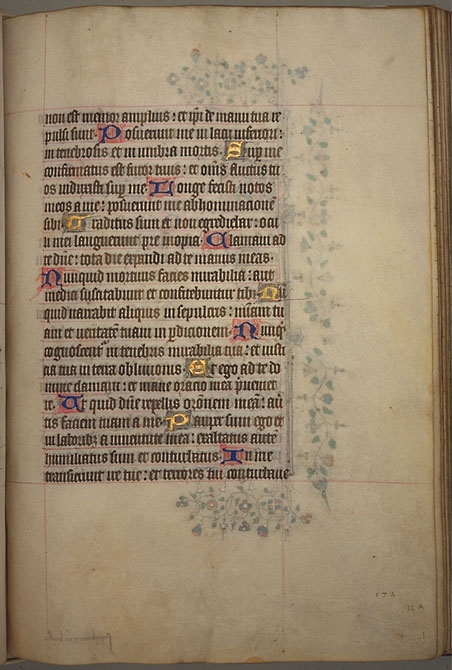 non est memor amplius : et ip̄i de manu tua re
pulsi sunt. Posuerunt me in lacu inferiori :
in tenebrosis et in umbra mortis. Sup̄ me
confirmatus est furor tuus : et om̄s fluctus tu
os induxisti sup̄ me. Longe fecisti notos
meos a me : posuerunt me abhominacionē
sibi. Traditus sum et non egrediebar : ocu
li mei languerunt pre inopia. Clamavi ad
te dn̄e : tota die expandi ad te manus meas.
Nunquid mortuis facies mirabilia : aut
medici suscitabunt et confitebuntur tibi. Nū
quid narrabit aliquis in sepulcro : miām tu
am et veritatē tuam in p̄dicionem. Nunq̄d
cognoscent᷑ in tenebris mirabilia tua : et iusti
cia tua in terra oblivionis. Et ego ad te do
mine clamavi : et mane oracio mea p̄veniet
te. Ut quid dn̄e repellis orōnem meā : av̄
tis faciem tuam a me. Pauper sum ego et
in laboribꝫ a iuventute mea : exaltatus autē
humiliatus sum et conturbatus. In me
transierunt ire tue : et terrores tui conturbave
172